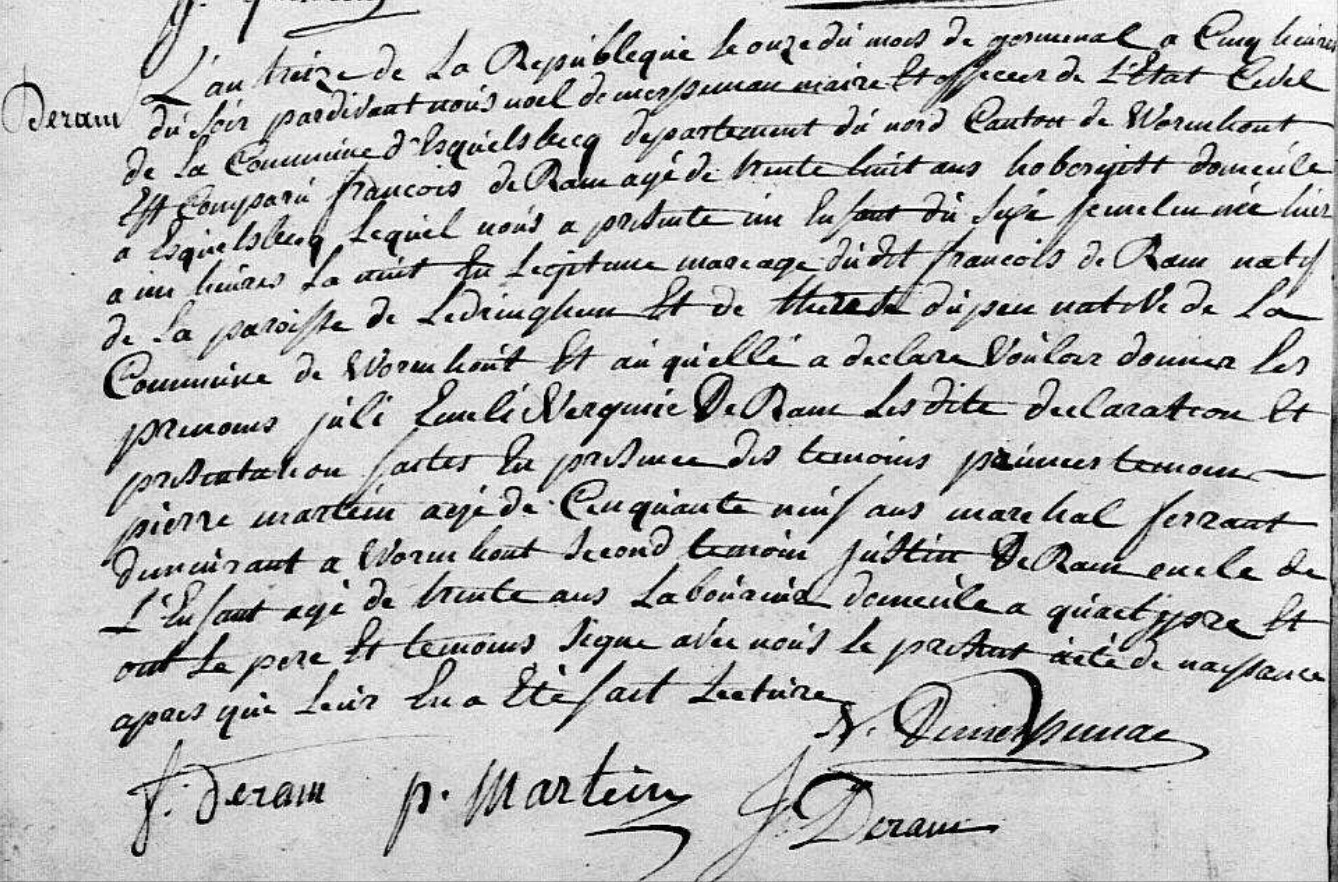 Deram
L'an treize de La Republeque le onze du mois de germenal a Cinq heures
du soir pardevant nous noel demersseman maire Et officeer de L'Etat Cevel
de La Commune d'Esquelsbecq departement du nord Canton de Wormhout
Est Comparu francois de Ram agé de trente huit ans domecile
a Esquelsbecq Lequel nous a presente un Enfant du sexe femelin née hier
a un heures La nuit En Legitime mareage dudit francois de Ram natif
de La paroisse de Ledringhem Et de therese native de La
Commune de Wormhout Et au quelle a declare Vouloir donner les
prenoms juli Emeli Verginie De Ram Lesdite declarateon Et
presentation faites En presence des temoins premier temoin
pierre martein agé de Cenquante neuf ans marehal ferrant
demeurant a Wormhout Second temoin justin De Ram oncle de
L'Enfant agé de trente ans Laboureur domecile a quaetypre Et
ont Le pere Et temoins signe avec nous le present acte de naissance
apres que Leur En a Eté fait Lecture
N. Demersseman
f. Deram p. Martein J. Deram